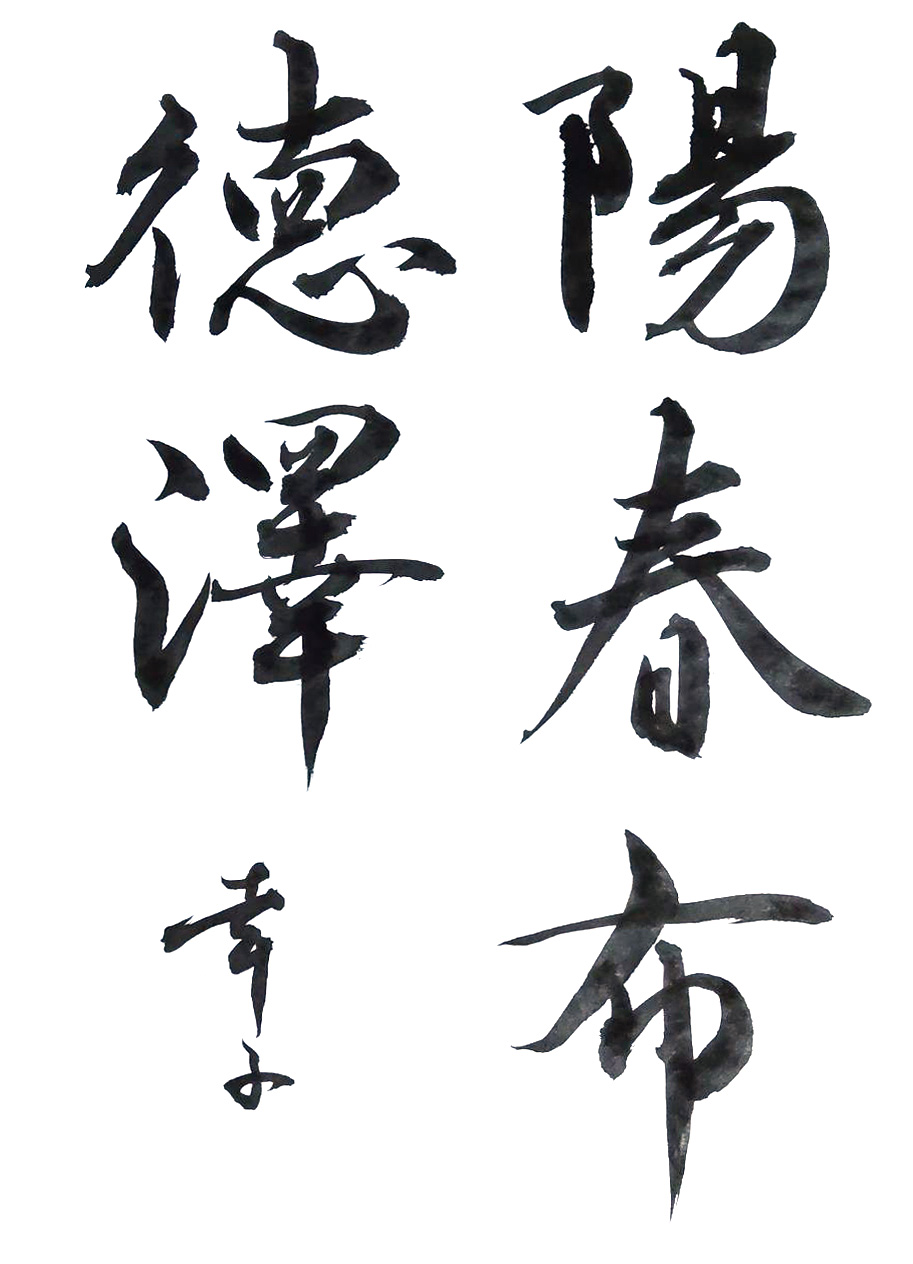 陽春布
德澤
幸子